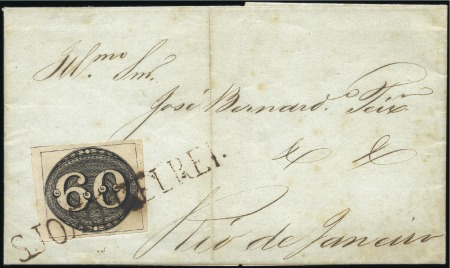 Ill.mo Snr.
José Bernard. Teix
& &
60
S.JOÃO D'ELREI.
Rio de Janeiro